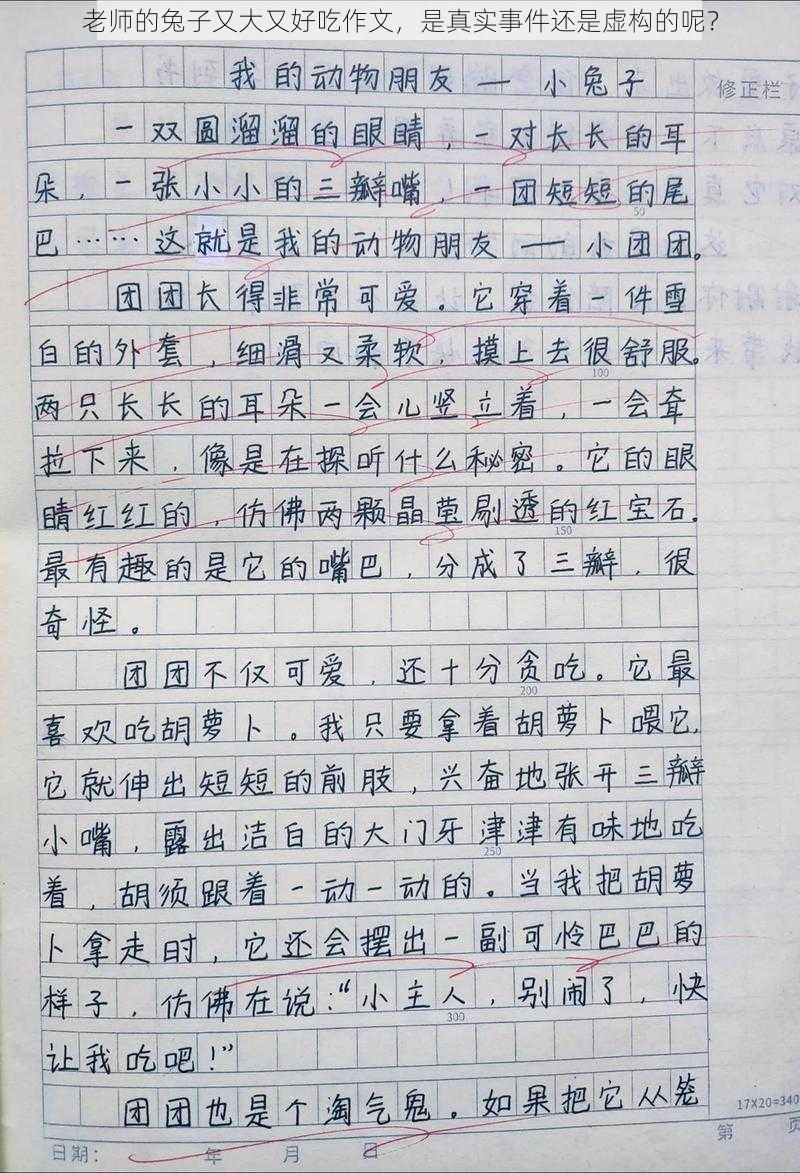 老师的兔子又大又好吃作文，是真实事件还是虚构的呢？
我的动物朋友——小兔子
修正栏
一双圆溜溜的眼睛，一对长长的耳
朵，一张小小的三瓣嘴，一团短短的尾
50
巴……这就是我的动物朋友——小团团。
团团长得非常可爱。它穿着一件雪
白的外套，细滑又柔软，摸上去很舒服。
100
两只长长的耳朵一会儿竖立着，一会耷
拉下来，像是在探听什么秘密。它的眼
睛红红的，仿佛两颗晶莹剔透的红宝石。
150
最有趣的是它的嘴巴，分成了三瓣，很
奇怪。
团团不仅可爱，还十分贪吃。它最
200
喜欢吃胡萝卜。我只要拿着胡萝卜喂它，
它就伸出短短的前肢，兴奋地张开三瓣
小嘴，露出洁白的大门牙津津有味地吃
250
着，胡须跟着一动一动的。当我把胡萝
卜拿走时，它还会摆出一副可怜巴巴的
样子，仿佛在说：“小主人，别闹了，快
300
让我吃吧！”
团团也是个淘气鬼。如果把它从笼
17X20=340
日期： 年 月 日
第 页